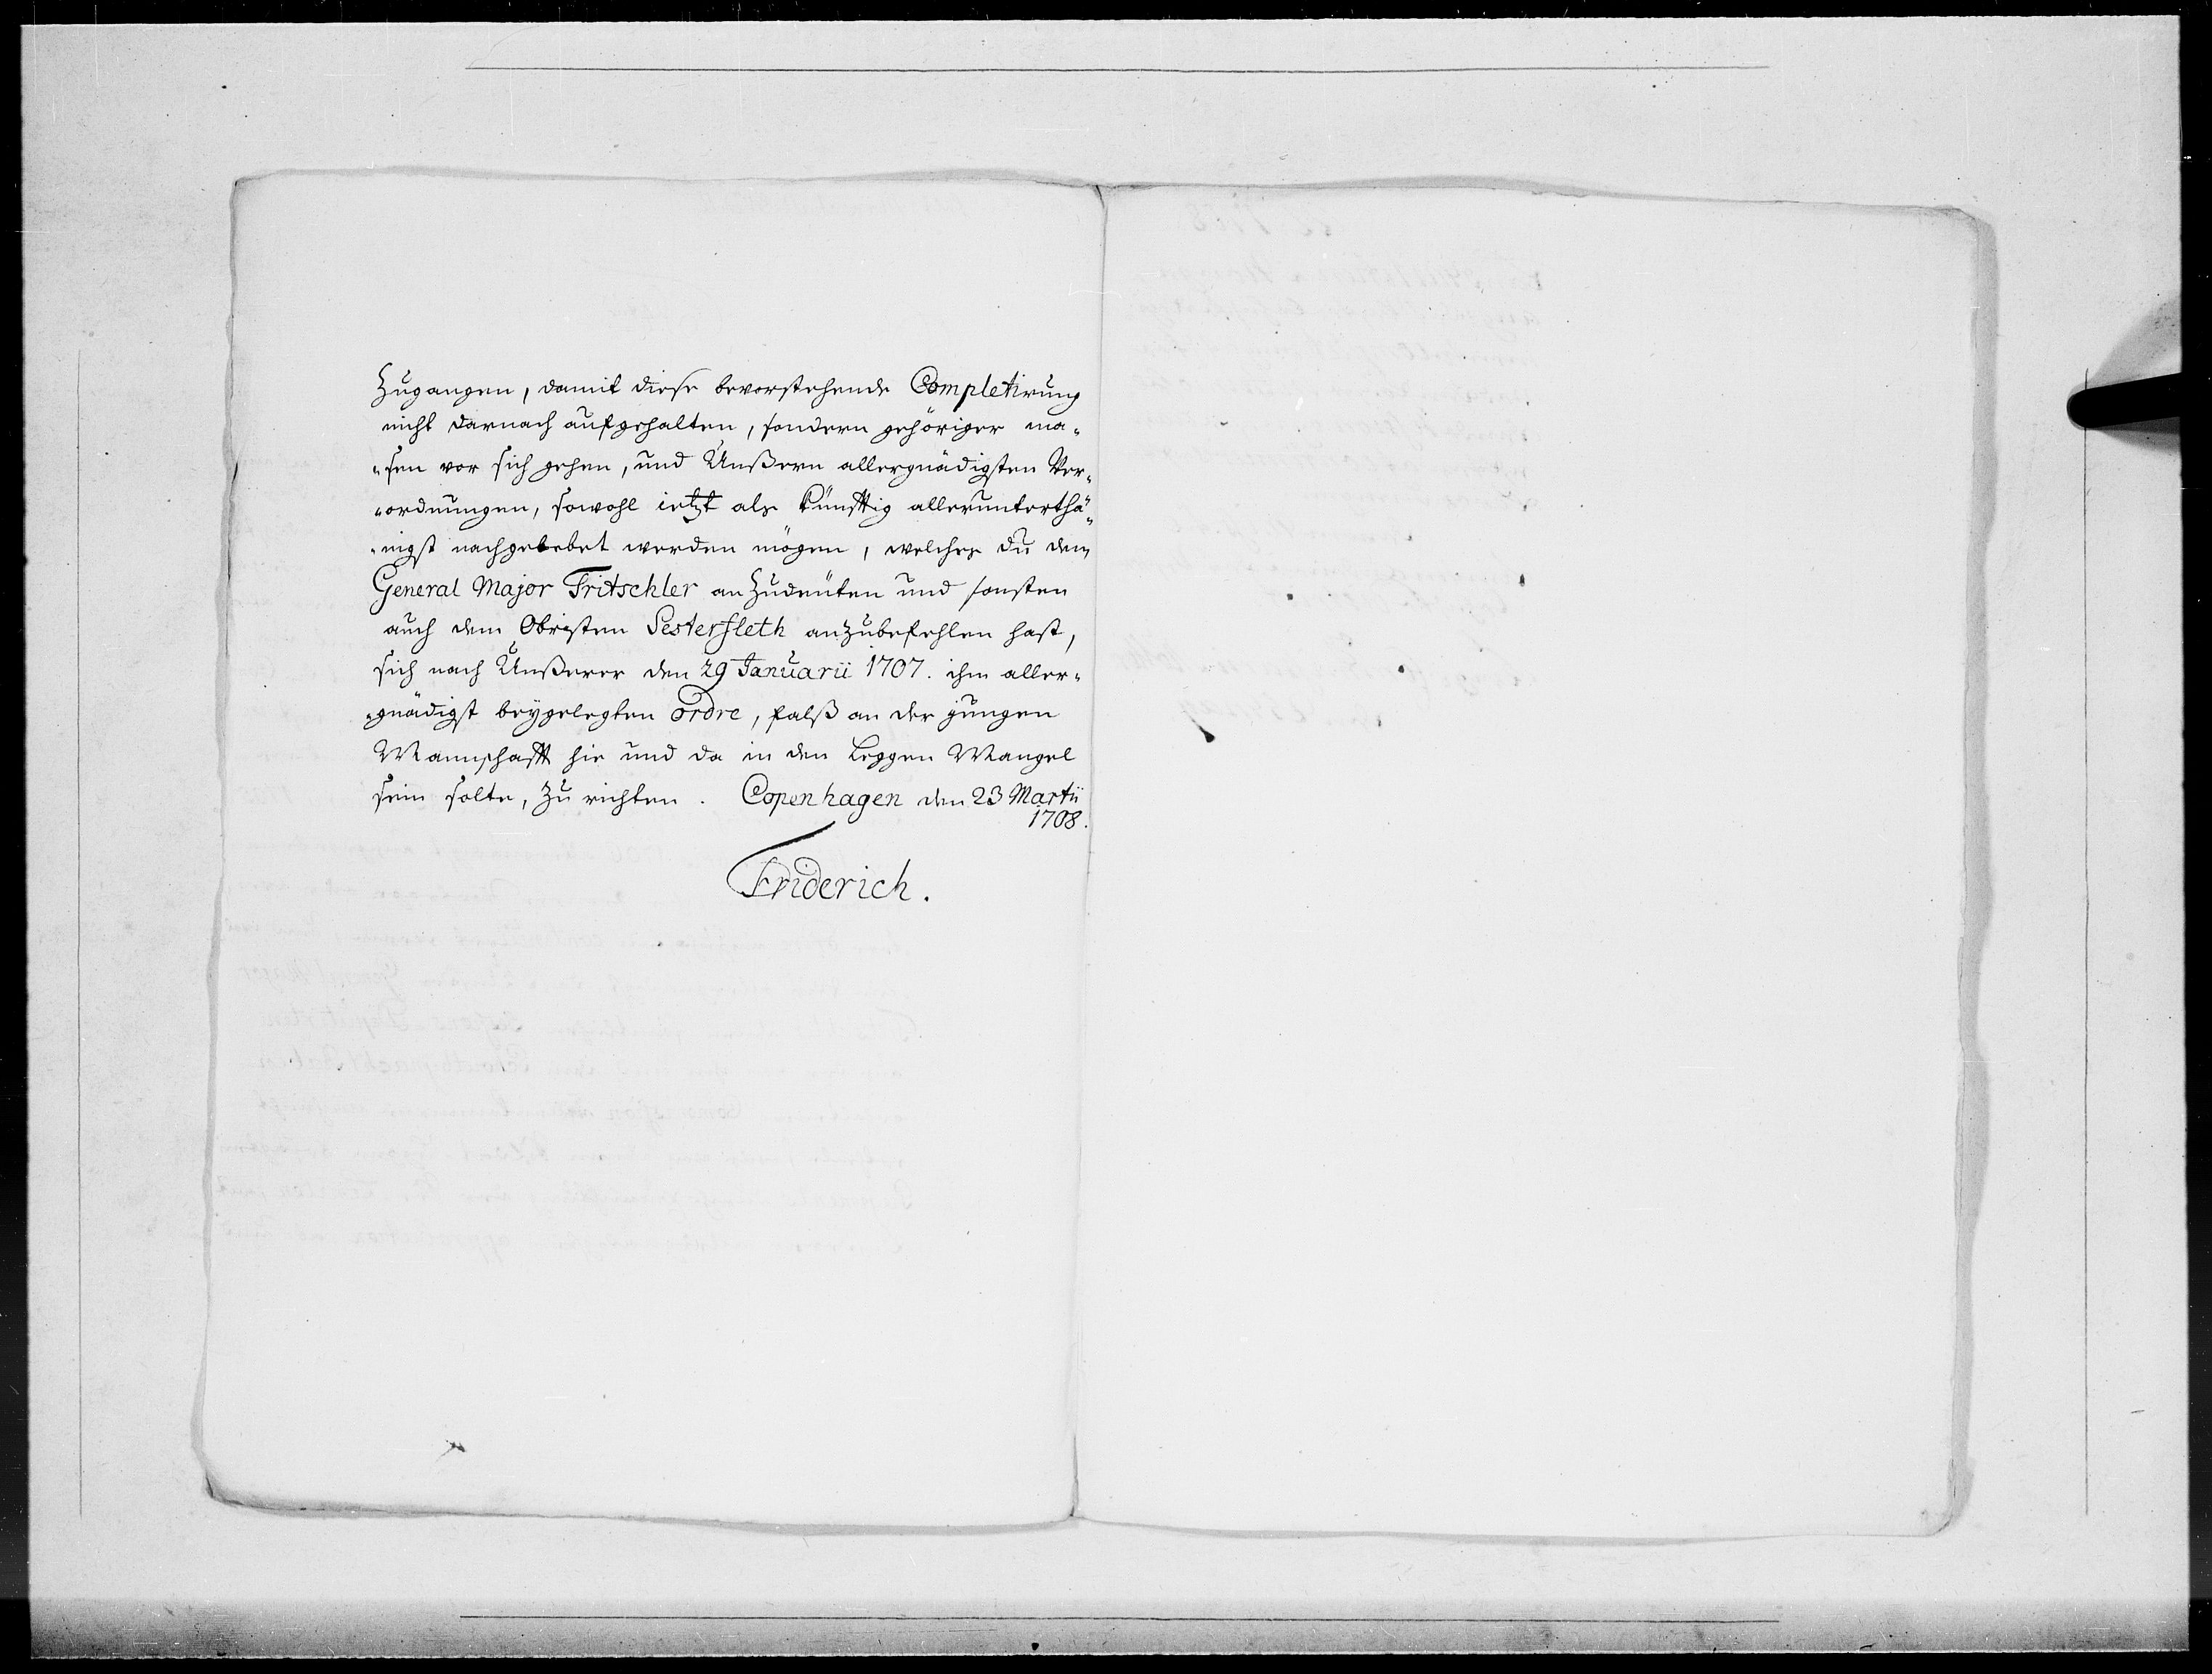 Zugangen, damit diese bevorstehende Completirung
nicht darnach aufgehalten, sondern gehöriger ma-
-sen vor sich gehen, und Unßern allergnädigsten Ver-
-ordnungen, sowohl ietzt als künfftig allerunterthä-
-nigst nachgelebet werden mögen, welches du dem
General Major Fritschler anzudeüten und sonsten
auch dem Obristen Sesterfleth anzubefehlen hast,
sich nach Unßerer den 29 Januarii 1707. ihm aller-
-gnädigst beygelegten ordre, falß an der jungen
Mannschafft hie und da in den Leggen Mangel
sein solte, zu richten. Copenhagen den 23 Martii
1708.
Friderich.